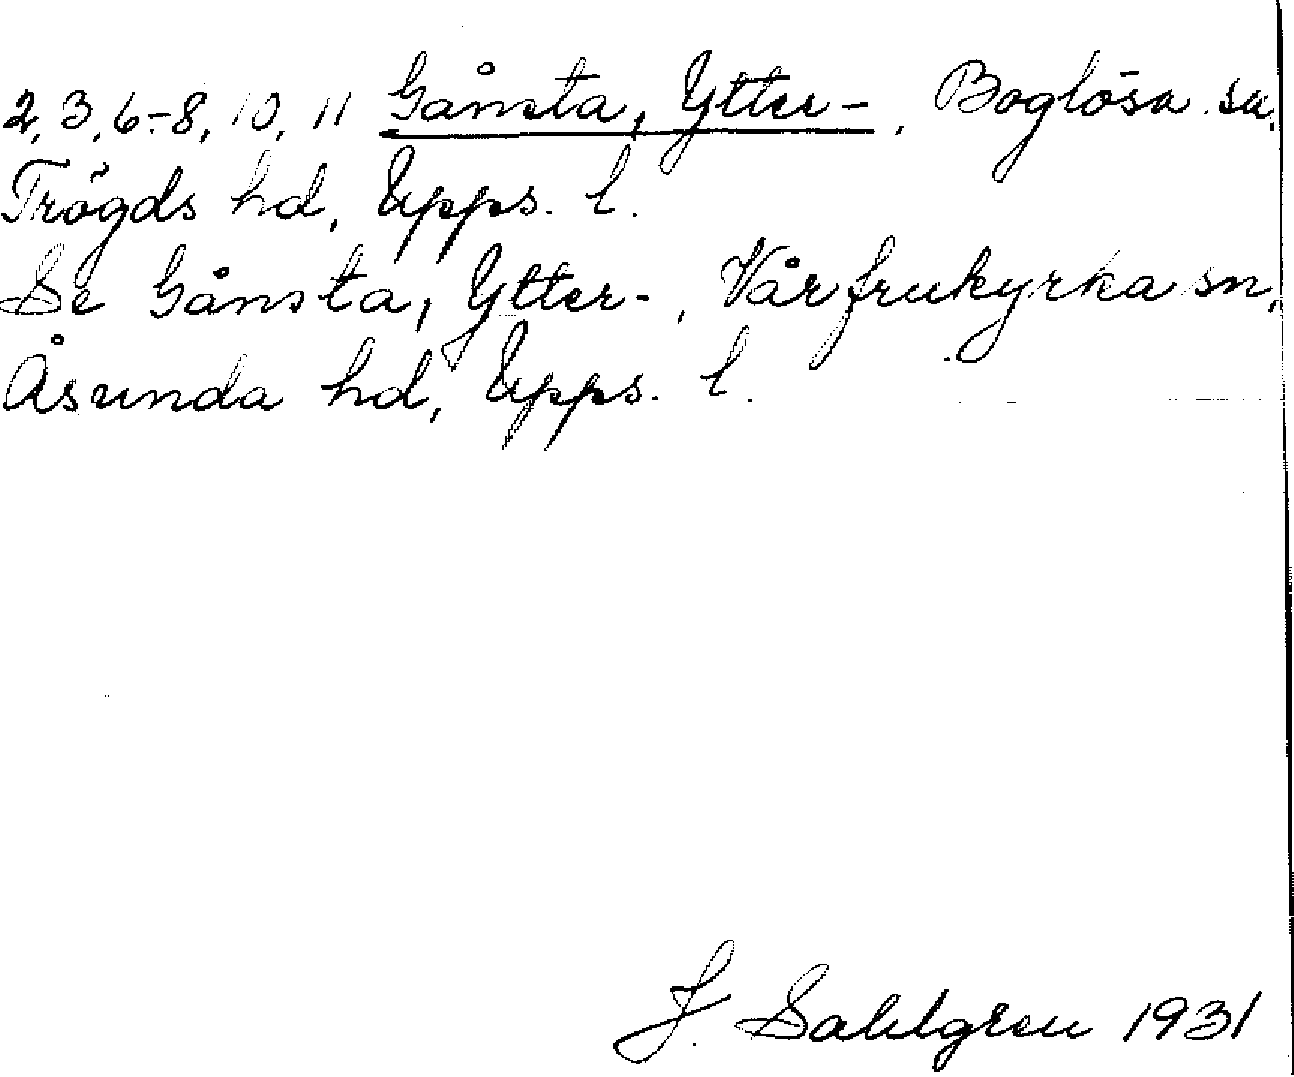 2, 3, 6-8, 10, 11 Gånsta, Ytter-, Boglösa sn,
Trögds hd, Upps. l.
Se Gånsta, Ytter-, Vårfrukyrka sn,
Åsunda hd, Upps. l.
J. Sahlgren 1931